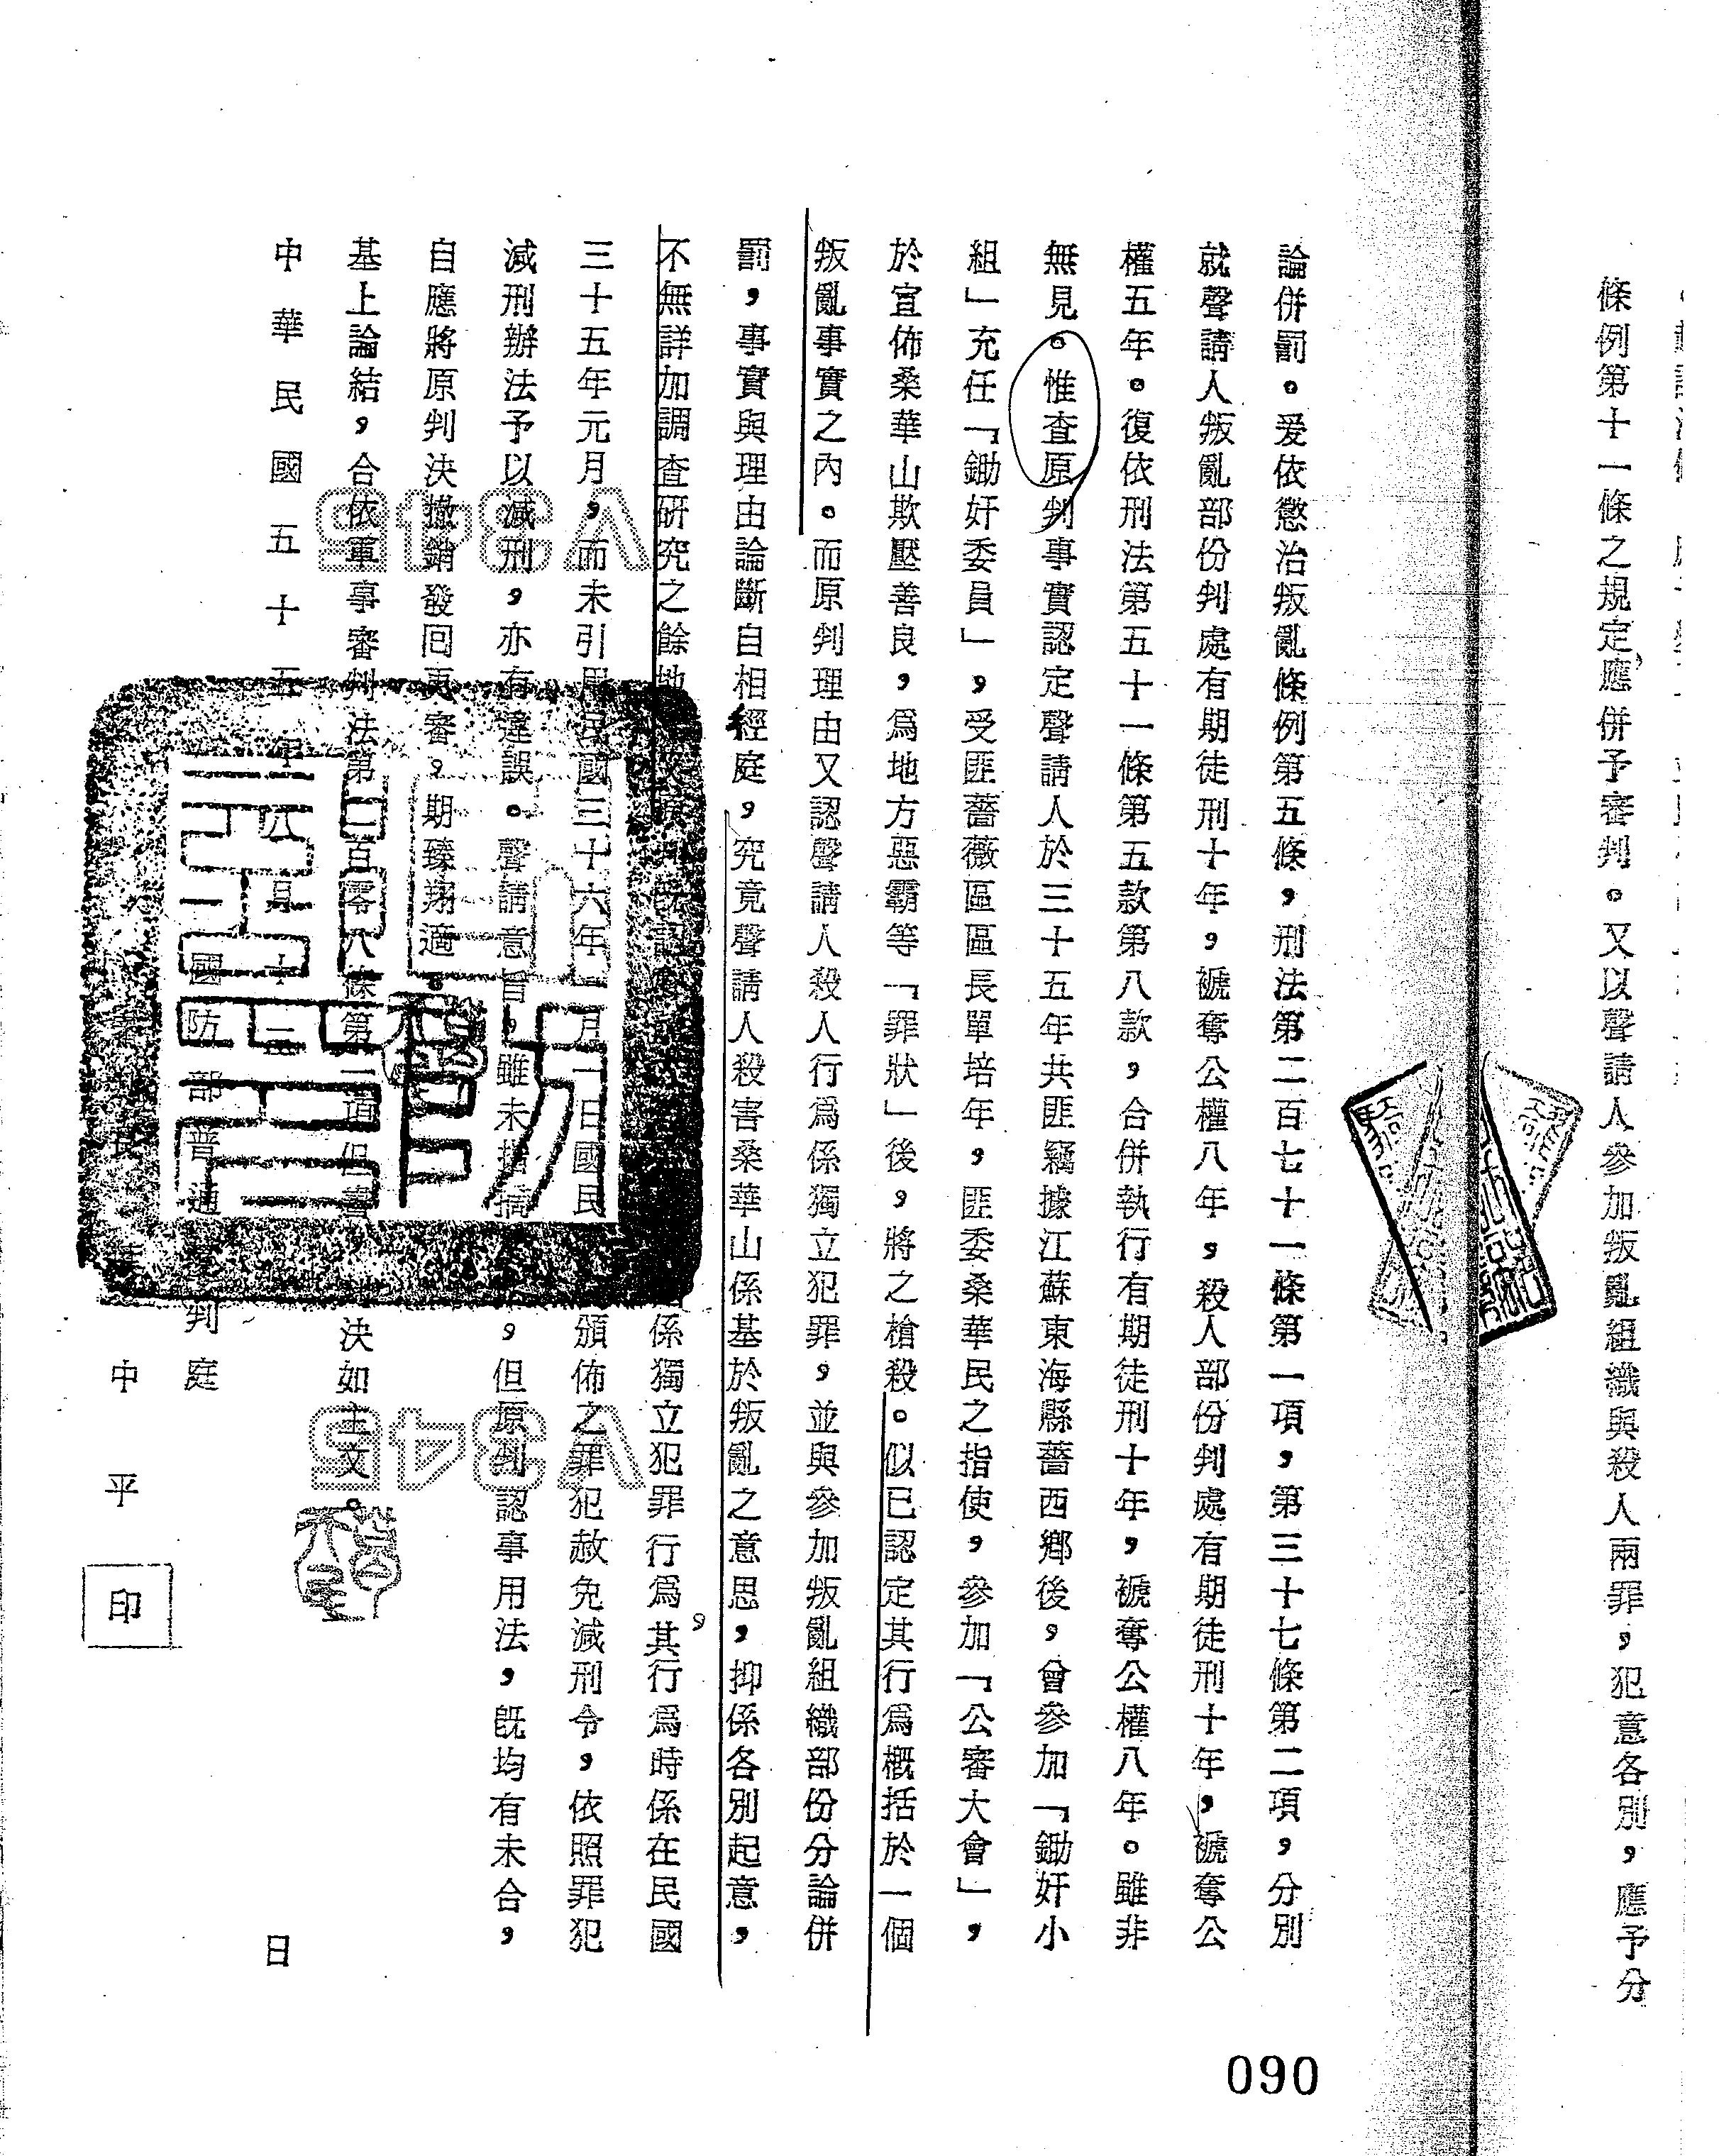 條例第十一條之規定應併予審判。又以聲請人參加叛亂組織與殺人兩罪，犯意各別，應予分
論併罰。爰依懲治叛亂條例第五條，刑法第二百七十一條第一項，第三十七條第二項，分別
就聲請人叛亂部份判處有期徒刑十年，褫奪公權八年，殺人部份判處有期徒刑十年，褫奪公
權五年。復依刑法第五十一條第五款第八款，合併執行有期徒刑十年，褫奪公權八年。雖非
無見。惟查原判事實認定聲請人於三十五年共匪竊據江蘇東海縣薔西鄉後，曾參加「鋤奸小
組」充任「鋤奸委員」，受匪薔薇區區長單培年，匪委桑華民之指使，參加「公審大會」，
於宣佈桑華山欺壓善良，爲地方惡霸等「罪狀」後，將之槍殺。似已認定其行爲概括於一個
叛亂事實之內。而原判理由又認聲請人殺人行爲係獨立犯罪，並與參加叛亂組織部份分論併
罰，事實與理由論斷自相經庭，究竟聲請人殺害桑華山係基於叛亂之意思，抑係各別起意，
不無詳加調查研究之餘地 係獨立犯罪行爲，其行爲時係在民國
三十五年元月，而未引用民國三十六年一月一日國民 頒佈之罪犯赦免減刑令，依照罪犯
減刑辦法予以減刑，亦有違誤。聲請意旨，雖未指摘 ，但原判認事用法，既均有未合，
自應將原判決撤銷發回更審，期臻翔適。
基上論結，合依軍事審判法第二百零八條第一項但書，判決如主文。
中華民國五十五年八月十二日
國防部普通審判庭
中平 印
A345
A345
090